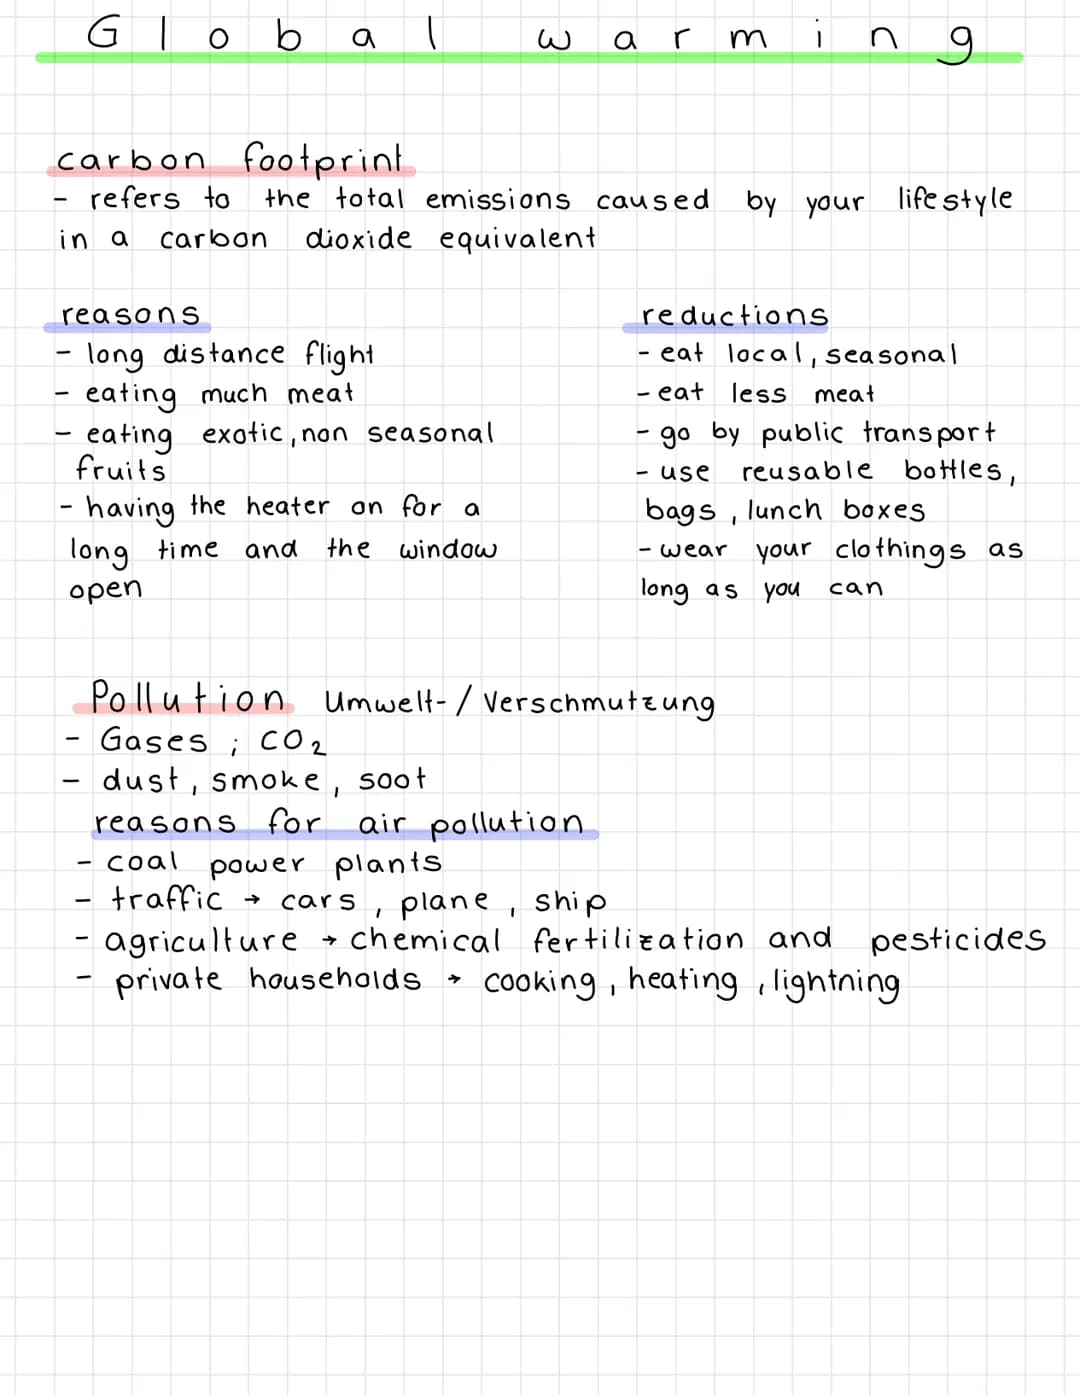 Global warming
carbon footprint
- refers to the total emissions caused by your lifestyle
in a carbon dioxide equivalent
reasons
- long distance flight
- eating much meat
- eating exotic, non seasonal
fruits
- having the heater on for a
long time and the window
open
reductions
- eat local, seasonal
- eat less meat
- go by public transport
- use reusable bottles,
bags, lunch boxes
- wear your clothings as
long as you can
Pollution Umwelt-/Verschmutzung
- Gases ; CO₂
- dust, smoke, soot
reasons for air pollution
- coal power plants
- traffic → cars, plane, ship
- agriculture → chemical fertilization and pesticides
- private households → cooking, heating, lightning